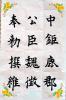 中鉅鹿郡
公臣魏徵
奉勅撰維